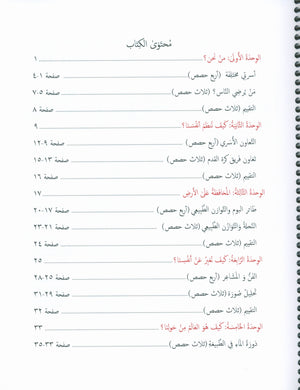 مُحتَوَى الكِتَاب
الوِحدَةُ الأُولَى: مَنْ نَحن؟ ١
أسرتي مختلفة (أربع حصص) صفحة ١-٤
مَنْ يُرضِي النَّاس؟ (ثلاث حصص) صفحة ٥-٧
التقييم (ثلاث حصص) صفحة ٨
الوِحدَةُ الثَّانِيَة: كَيفَ نُنظِّمُ أنفُسَنا؟ ٩
التَّعاون الأُسري (أربع حصص) صفحة ٩-١٢
تعاون فريق كرة القدم (ثلاث حصص) صفحة ١٣-١٥
التقييم (ثلاث حصص) صفحة ١٦
الوِحدَةُ الثَّالِثَة: المُحَافَظَة عَلَى الأَرضِ ١٧
طائر البوم والتَّوازن الطَّبيعي (أربع حصص) صفحة ١٧-٢٠
النَّحلة والتَّوازن الطَّبيعي (ثلاث حصص) صفحة ٢١-٢٣
التقييم (ثلاث حصص) صفحة ٢٤
الوِحدَةُ الرَّابِعَة: كَيفَ نُعبِّرُ عَنْ أنفُسِنا؟ ٢٥
الفنُّ والمشاعر (أربع حصص) صفحة ٢٥-٢٨
تَحليلُ صُورَة (ثلاث حصص) صفحة ٢٩-٣١
التقييم (ثلاث حصص) صفحة ٣٢
الوِحدَةُ الخَامِسَة: كَيفَ هُوَ العَالَمُ مِنْ حَولِنا؟ ٣٣
دَورَةُ المَاءِ فِي الطَّبيعَةِ (ثلاث حصص) صفحة ٣٣-٣٥